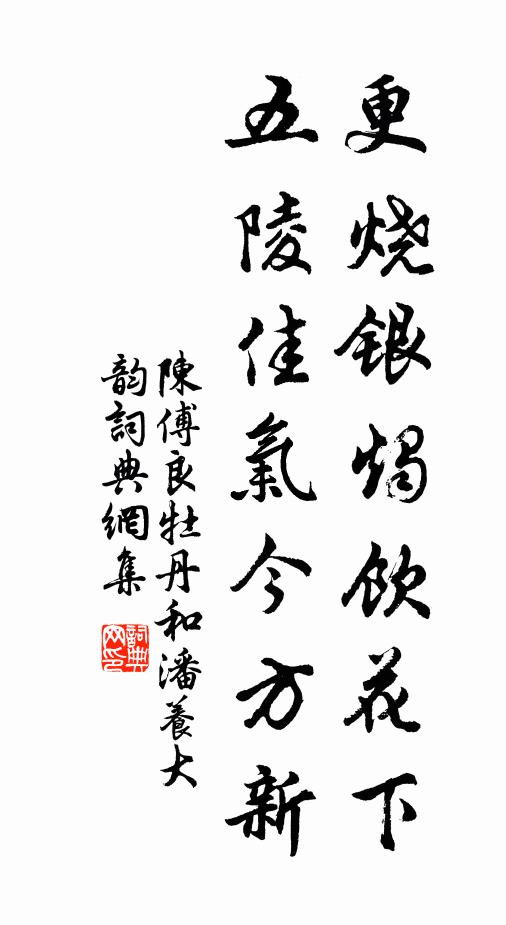 更燒銀燭飲花下
五陵佳氣今方新
陳傅良牡丹和潘養大
韵詞典網集
詞典網印